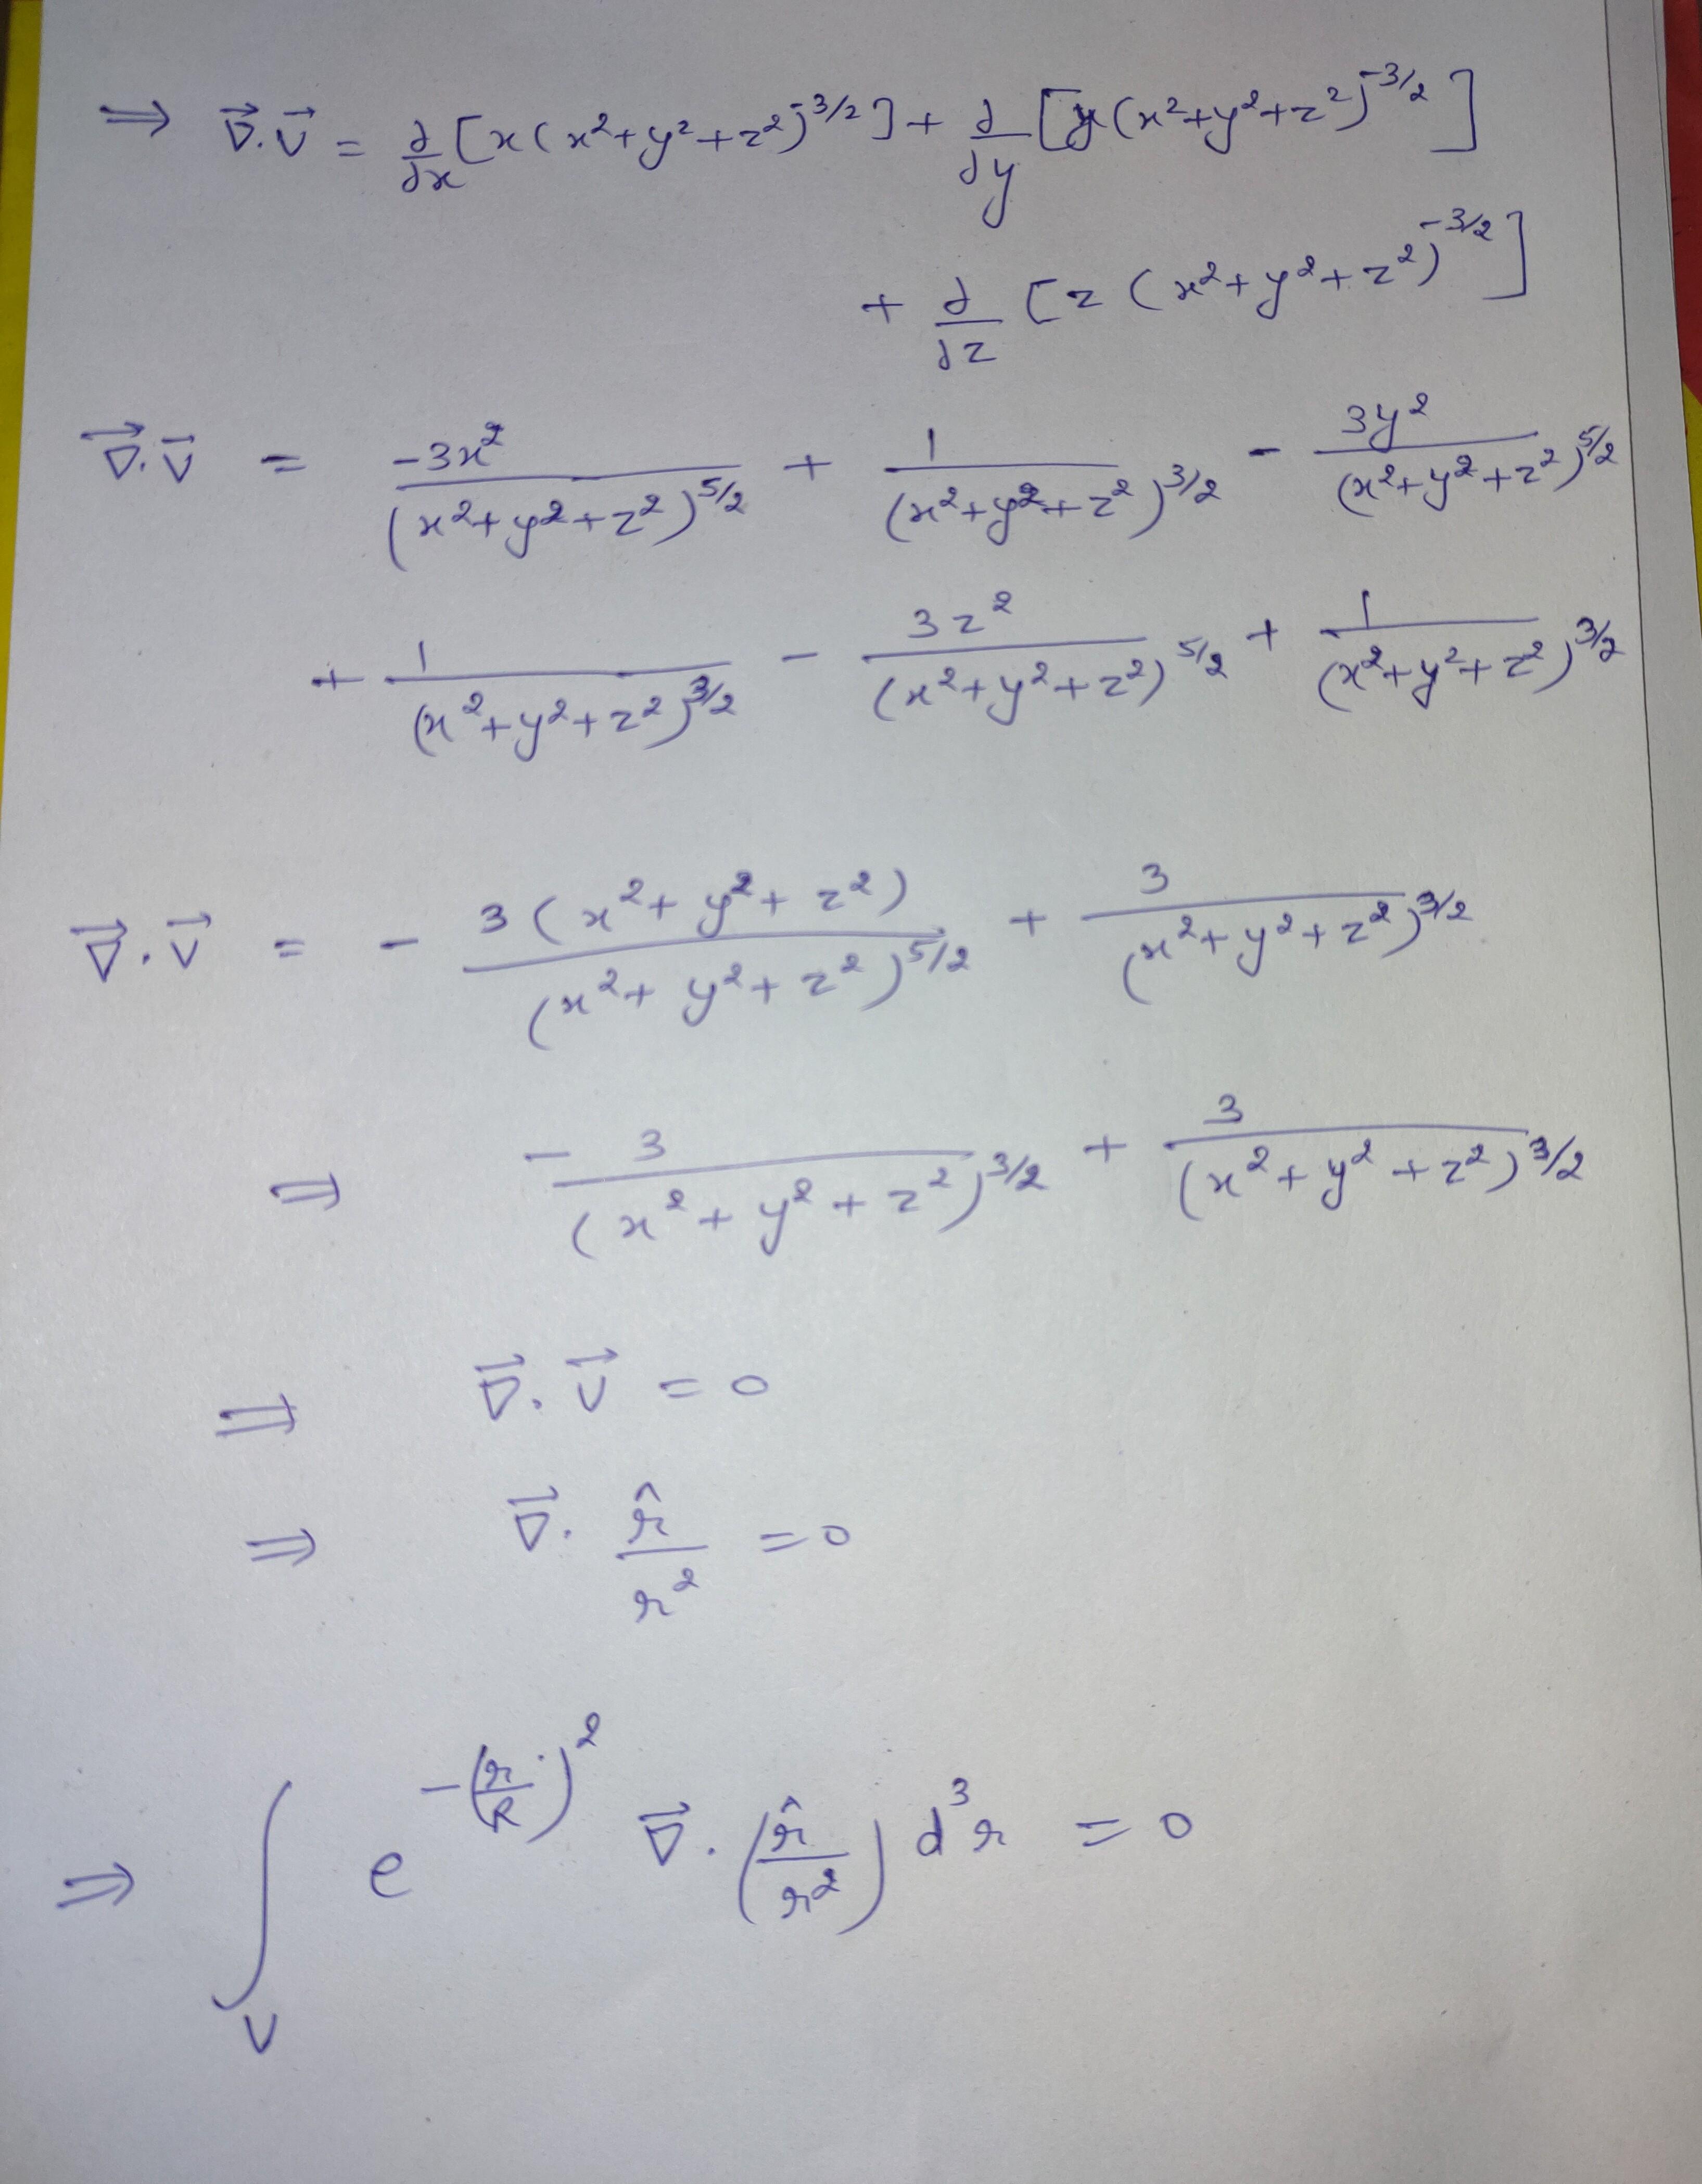 ⇒ ∇⃗.v⃗ = ∂/∂x [x(x²+y²+z²)^-3/2] + ∂/∂y [y(x²+y²+z²)^-3/2]
+ ∂/∂z [z(x²+y²+z²)^-3/2]
∇⃗.v⃗ = -3x²/(x²+y²+z²)^5/2 + 1/(x²+y²+z²)^3/2 - 3y²/(x²+y²+z²)^5/2
+ 1/(x²+y²+z²)^3/2 - 3z²/(x²+y²+z²)^5/2 + 1/(x²+y²+z²)^3/2
∇⃗.v⃗ = - 3(x²+y²+z²)/(x²+y²+z²)^5/2 + 3/(x²+y²+z²)^3/2
⇒ - 3/(x²+y²+z²)^3/2 + 3/(x²+y²+z²)^3/2
⇒ ∇⃗.v⃗ = 0
⇒ ∇⃗. r̂/r² = 0
⇒ ∫_V e^-(r/R)² ∇⃗.(r̂/r²) d³r = 0